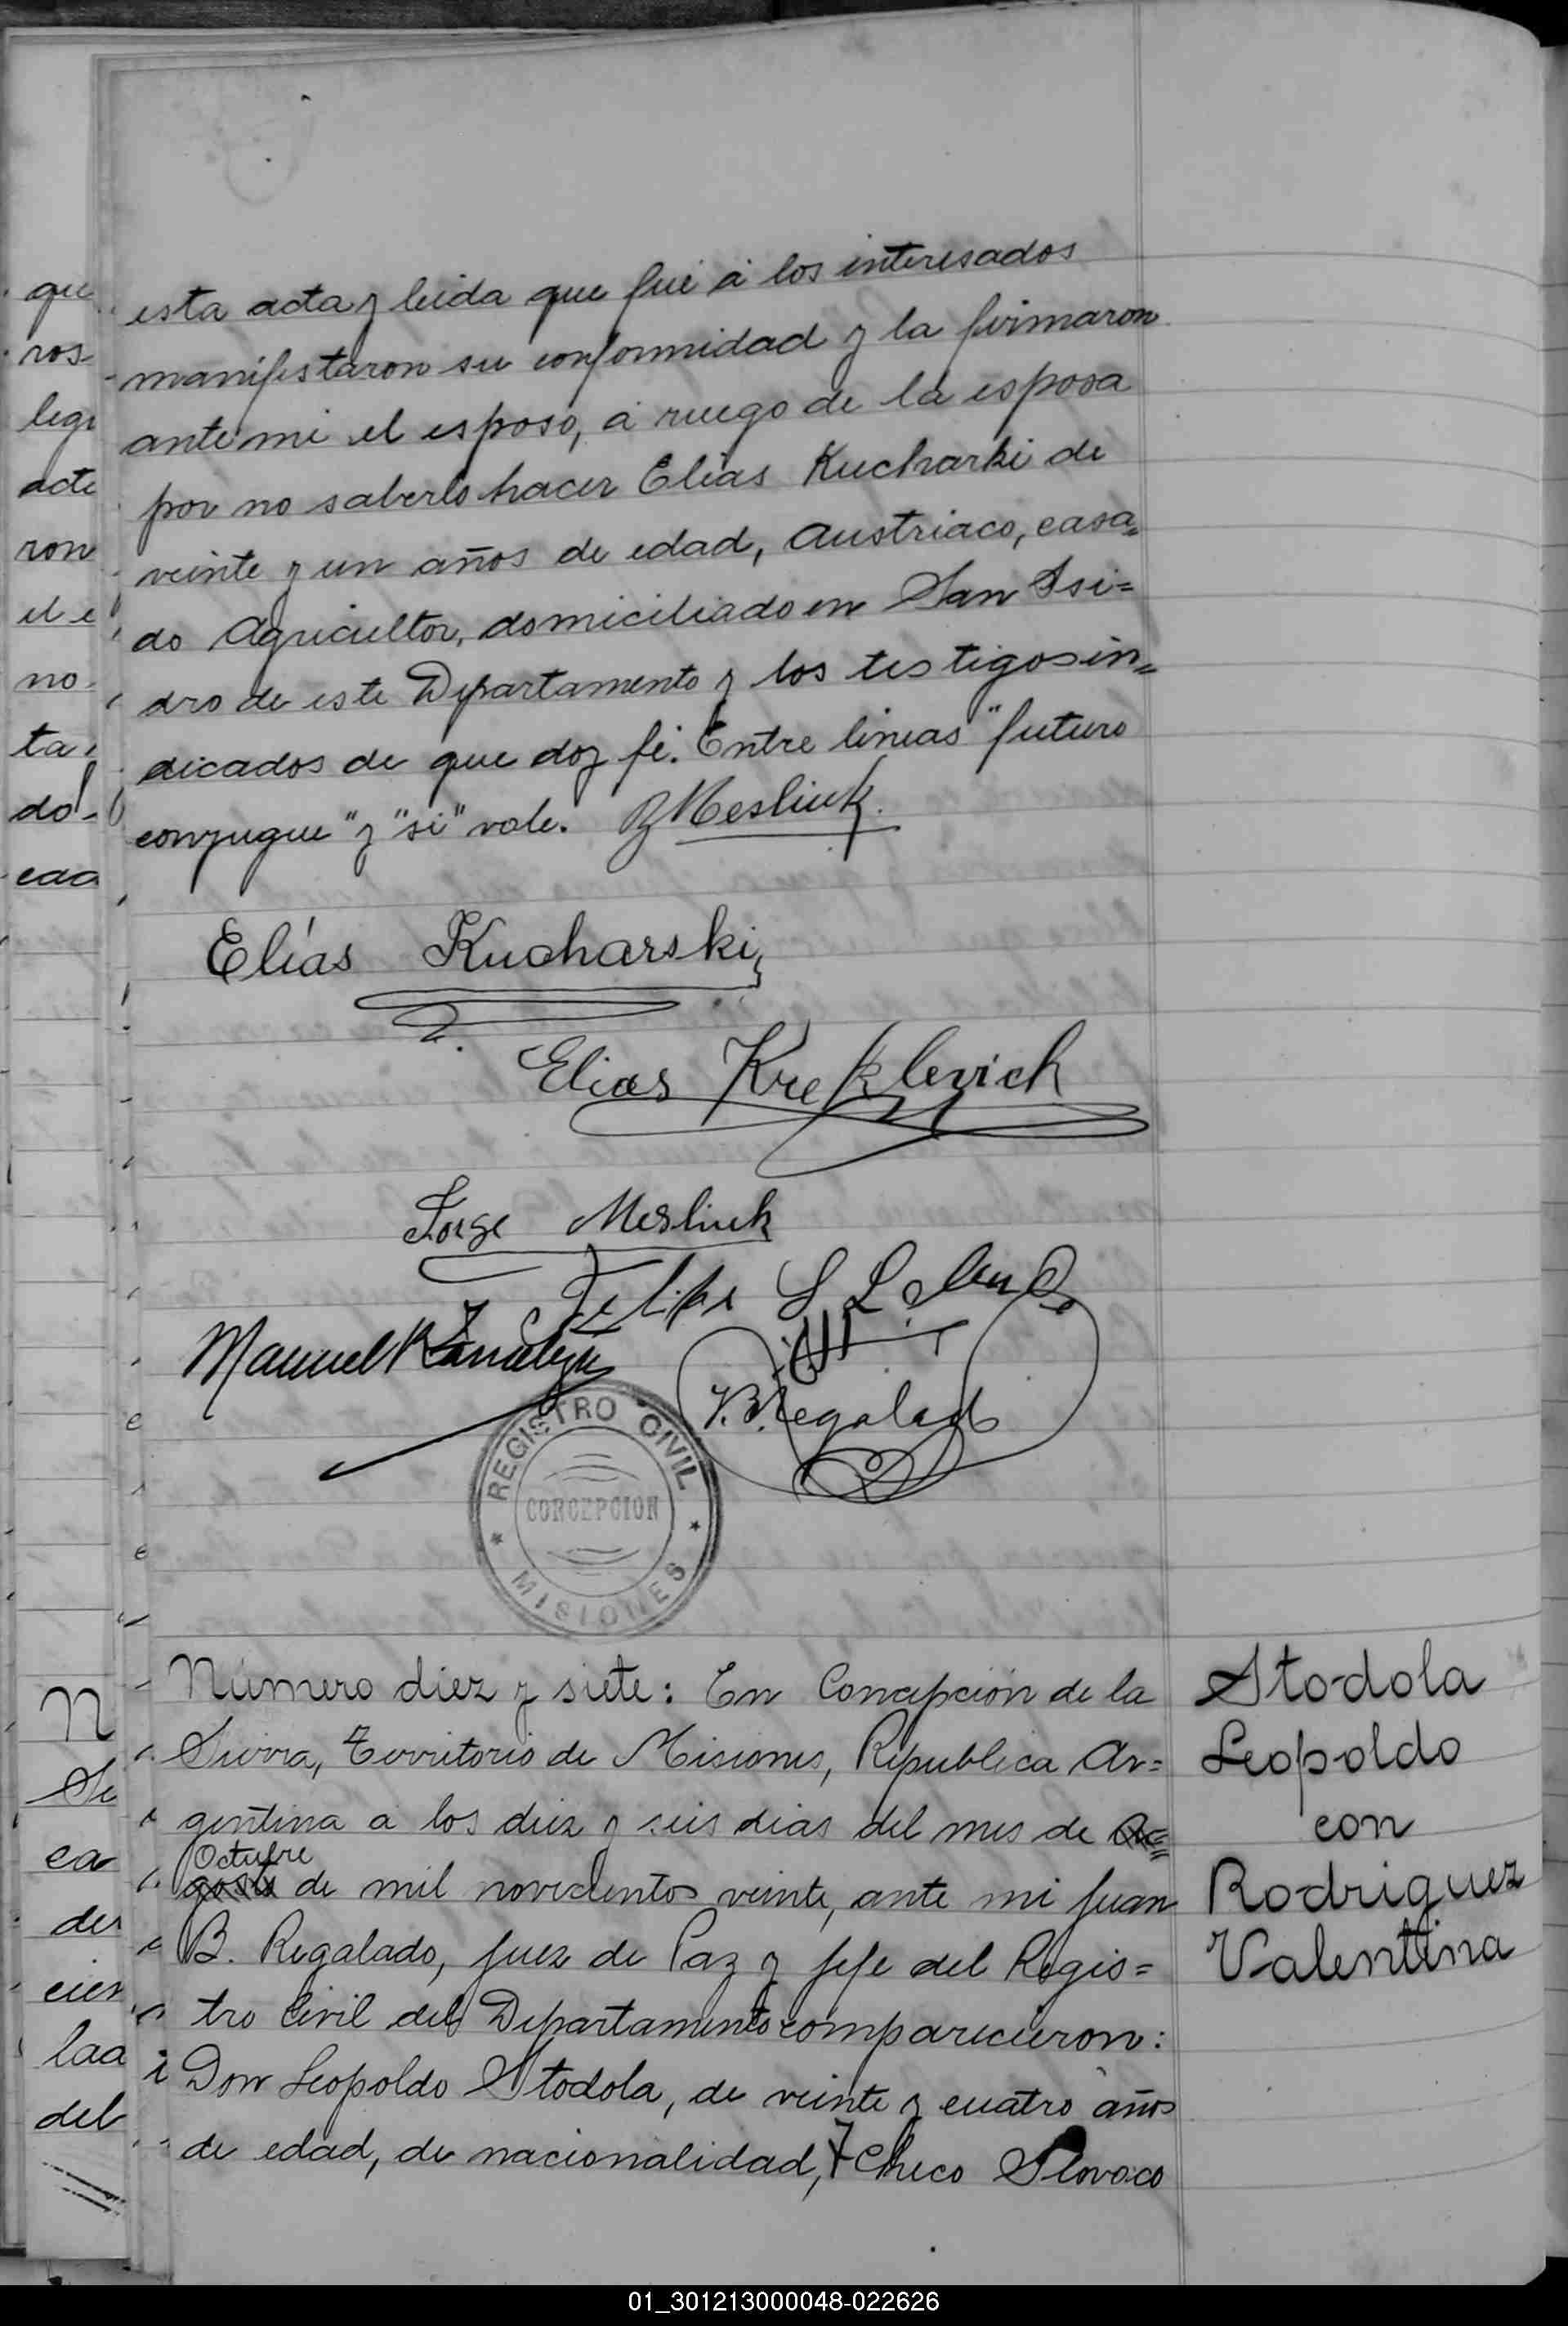 esta acta y leida que fué á los interesados
manifestaron su conformidad y la firmaron
ante mi el esposo, á ruego de la esposa
por no saberlo hacer Elias Kucharki de
veinte y un años de edad, Austriaco, casa=
do Agricultor, domiciliado en San Isi=
dro de este Departamento y los testigos in=
dicados de que doy fé. Entre lineas "futuro
conyugue" y "si" vale. Mesliuk
Elías Kucharski
Elias Kreklevich
Jorge Mesliuk
Felipe S
Manuel
J. B. Regalado
REGISTRO CIVIL
CONCEPCION
MISIONES
Número diez y siete: En Concepción de la
Sierra, Territorio de Misiones, Republica Ar=
gentina á los diez y seis dias del mes de Ag=
Octubre
gosto de mil novecientos veinte, ante mi Juan
B. Regalado, Juez de Paz y Jefe del Regis=
tro Civil del Departamento comparecieron:
Don Leopoldo Stodola, de veinte y cuatro años
de edad, de nacionalidad, Checo Slovaco
Stodola
Leopoldo
con
Rodriguez
Valentina
que
ros
acta
ron
el e
no
ta
do
N
ca
laa
del
01_301213000048-022626